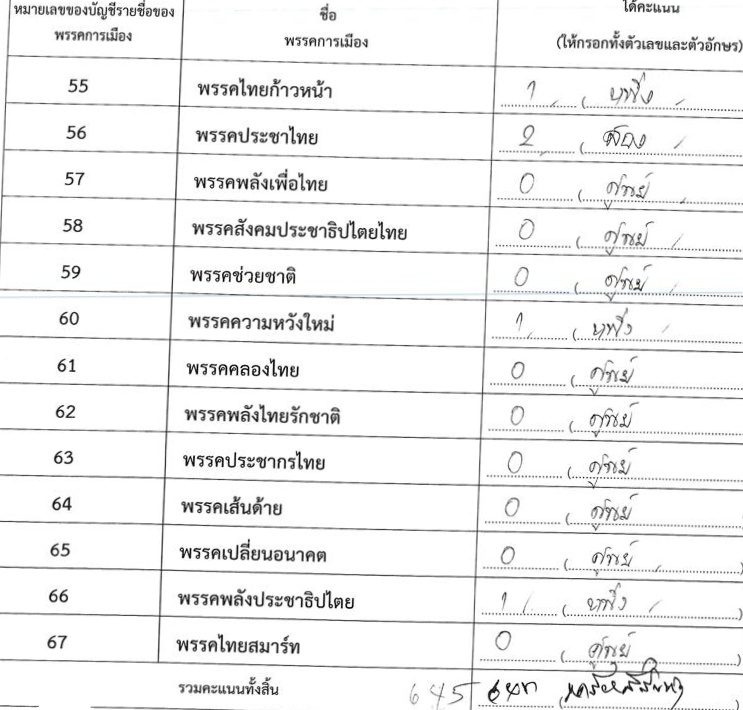 หมายเลขของบัญชีรายชื่อของ พรรคการเมือง ชื่อ พรรคการเมือง ได้คะแนน (ให้กรอกทั้งตัวเลขและตัวอักษร)
55 พรรคไทยก้าวหน้า 1 ( หนึ่ง
56 พรรคประชาไทย 2 ( สอง
57 พรรคพลังเพื่อไทย 0 ( ศูนย์
58 พรรคสังคมประชาธิปไตยไทย 0 ( ศูนย์
59 พรรคช่วยชาติ 0 ( ศูนย์
60 พรรคความหวังใหม่ 1 ( หนึ่ง
61 พรรคคลองไทย 0 ( ศูนย์
62 พรรคพลังไทยรักชาติ 0 ( ศูนย์
63 พรรคประชากรไทย 0 ( ศูนย์
64 พรรคเส้นด้าย 0 ( ศูนย์
65 พรรคเปลี่ยนอนาคต 0 ( ศูนย์ )
66 พรรคพลังประชาธิปไตย 1 ( หนึ่ง )
67 พรรคไทยสมาร์ท 0 ( ศูนย์ )
รวมคะแนนทั้งสิ้น 645